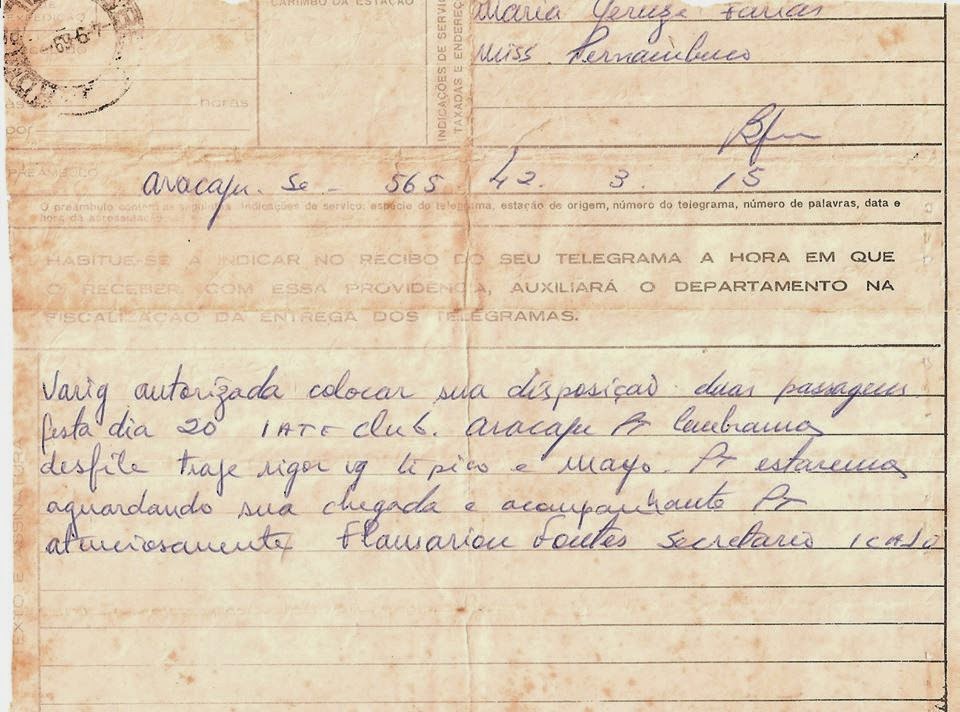 CARIMBO DA ESTAÇÃO
EXPEDIÇÃO
69-6-7
às horas
por
INDICAÇÕES DE SERVIÇO
TAXADAS E ENDEREÇO
Maria Farias
Miss Pernambuco
PREÂMBULO
Aracaju. Se - 565 42. 3. 15
O preâmbulo contém as seguintes indicações de serviço: espécie do telegrama, estação de origem, número do telegrama, número de palavras, data e
hora da apresentação.
HABITUE-SE A INDICAR NO RECIBO DO SEU TELEGRAMA A HORA EM QUE
O RECEBER. COM ESSA PROVIDÊNCIA, AUXILIARÁ O DEPARTAMENTO NA
FISCALIZAÇÃO DA ENTREGA DOS TELEGRAMAS.
TEXTO E ASSINATURA
Varig autorizada colocar sua disposição duas passagens
festa dia 20 IATE Club. Aracaju Pt lembramos
desfile traje rigor vg típico e mayo. Pt estaremos
aguardando sua chegada e acompanhante Pt
atenciosamente Flamarion Fontes Secretario